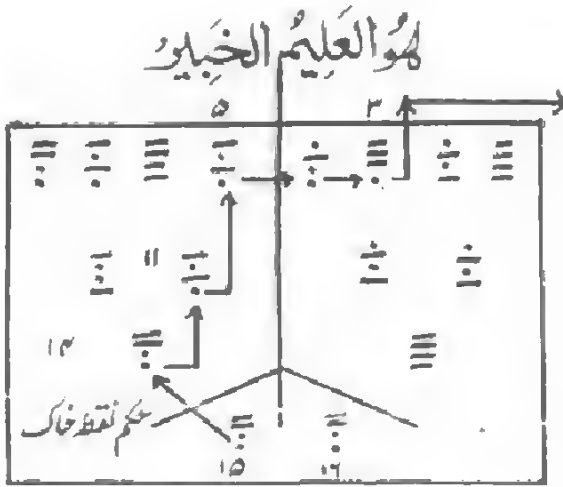 هُوَ العَلِيمُ الخَبِيرُ
۳ ۵
۱۱
۱۴
حکم نقطہ خاک
۱۶ ۱۵